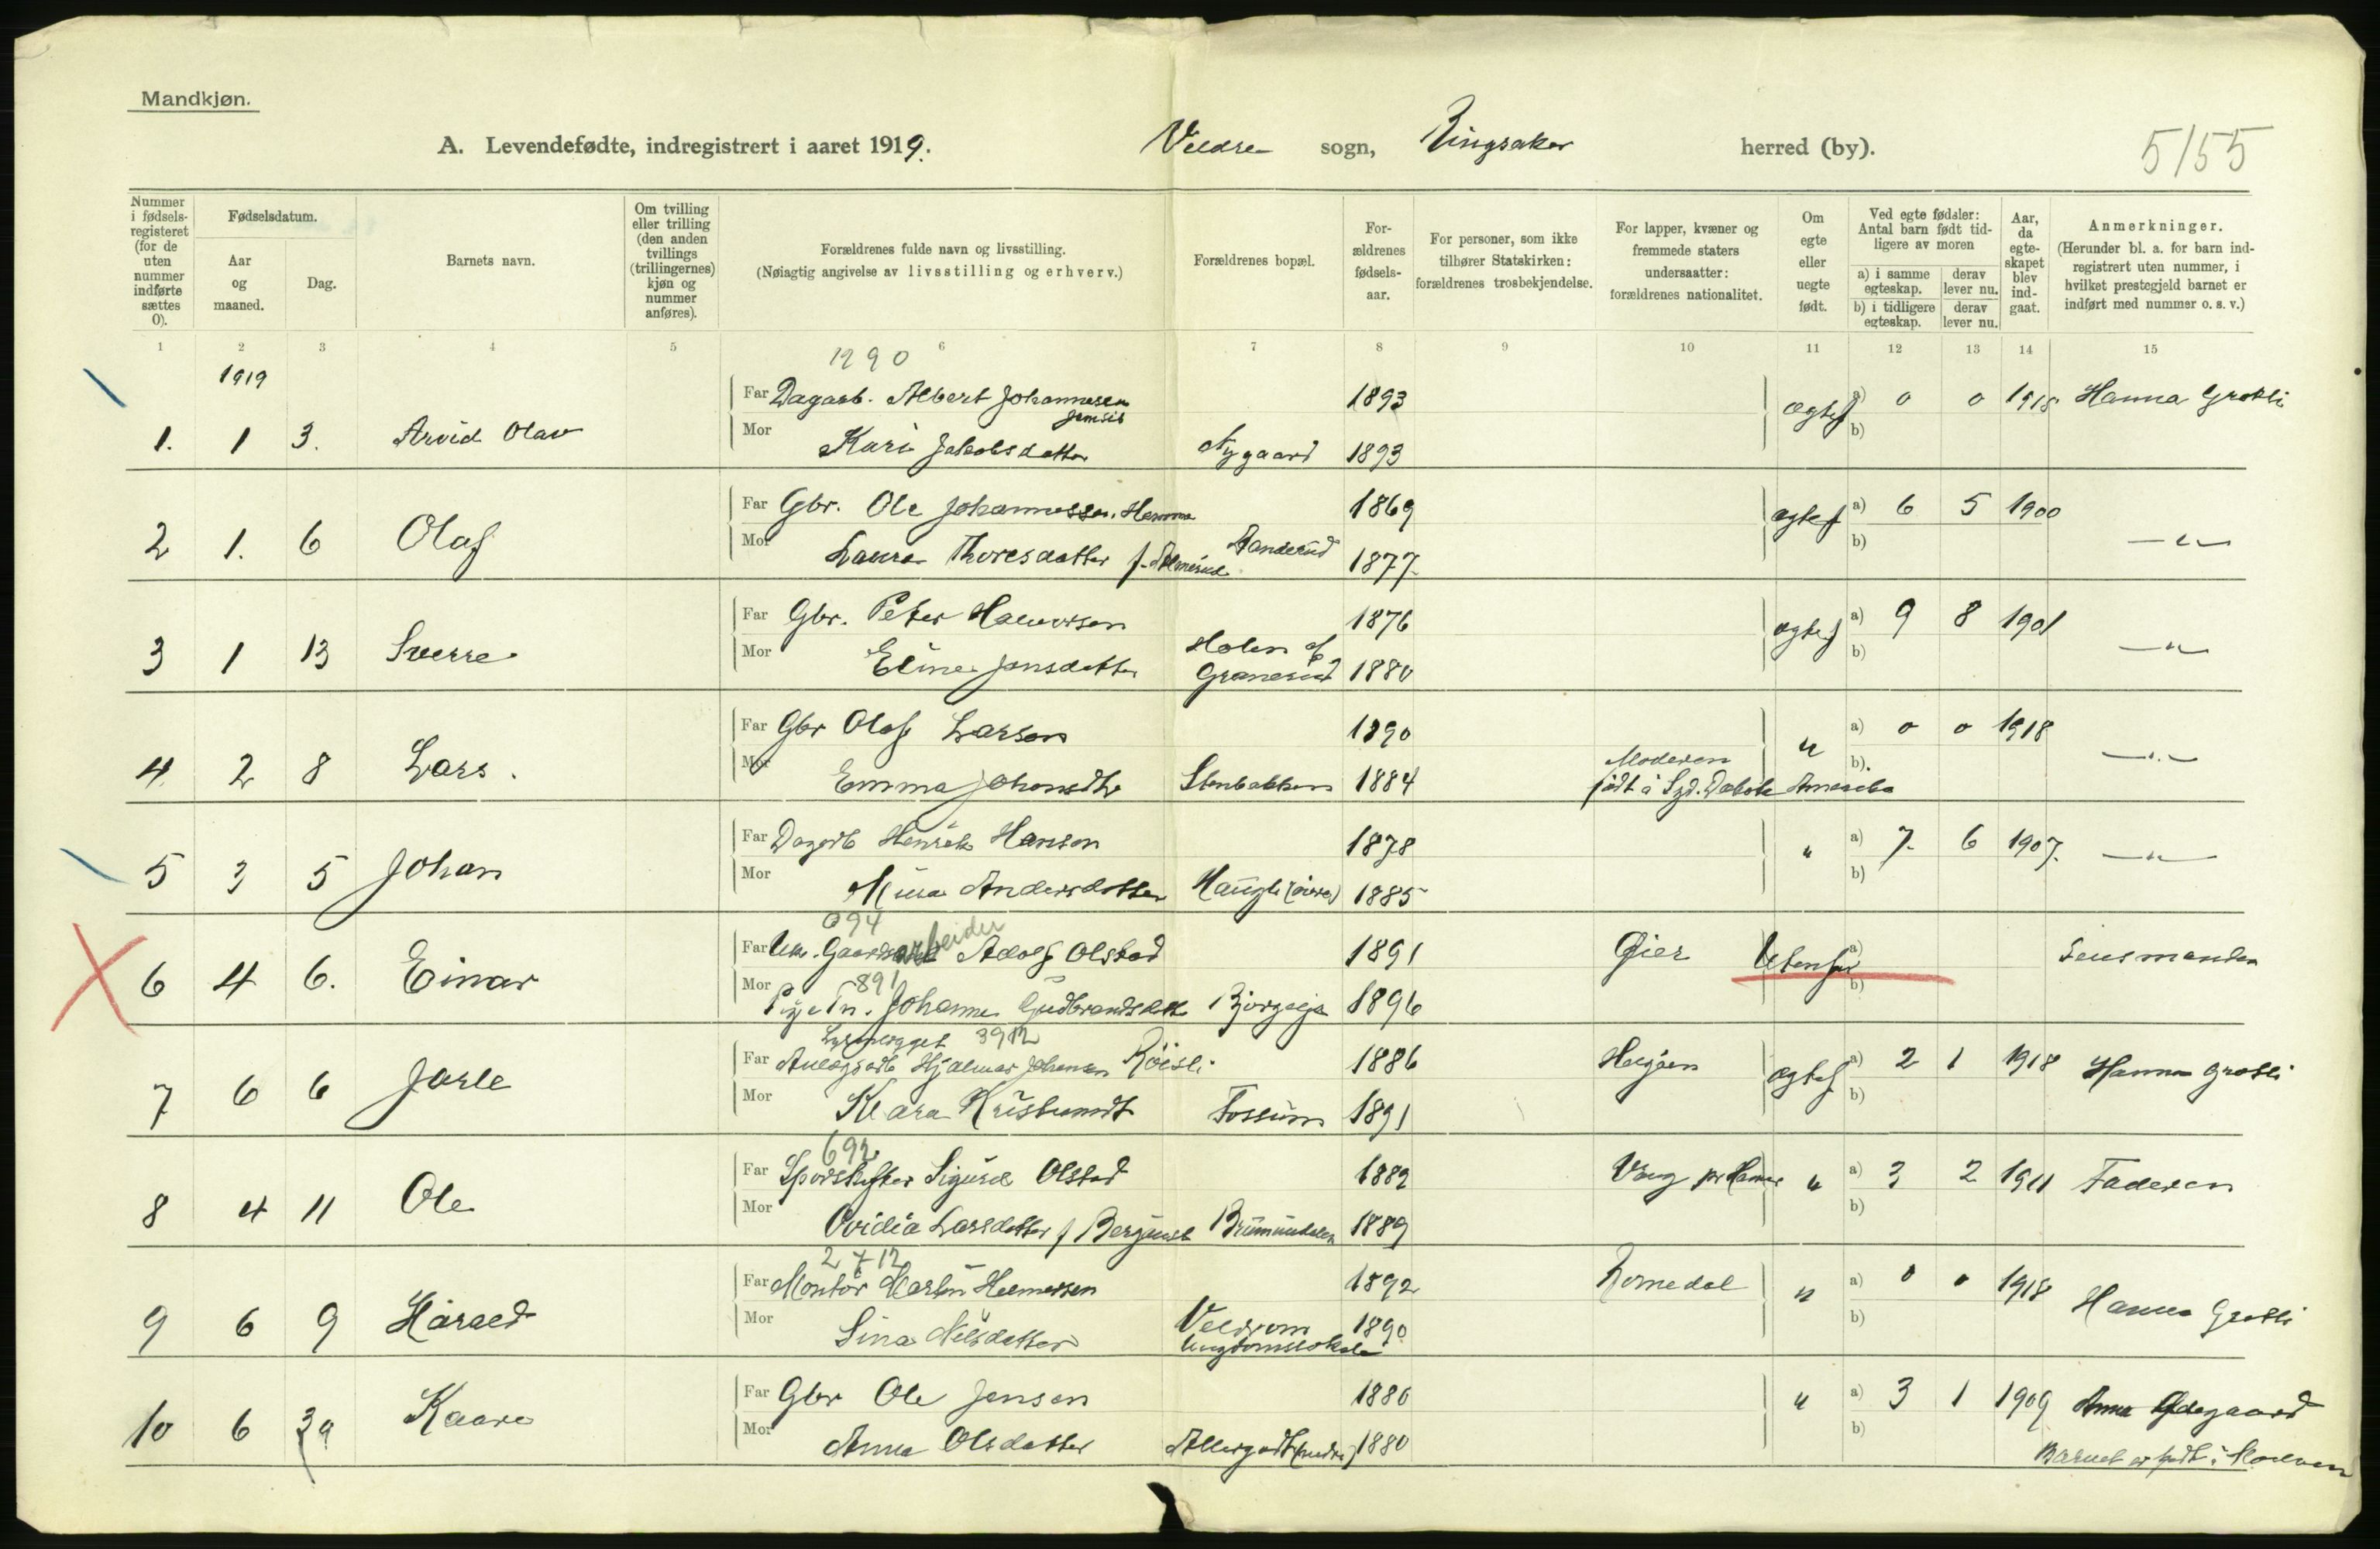 Mandkjøn.
A. Levendefødte, indregistrert i aaret 1919. Veldre sogn, Ringsaker herred (by). 5/55
Nummer i fødselsregisteret (for de uten nummer indførte sættes 0).
Fødselsdatum.
Aar og maaned.
Dag.
Barnets navn.
Om tvilling eller trilling (den anden tvillings (trillingernes) kjøn og nummer anføres).
Forældrenes fulde navn og livsstilling.
(Nøiagtig angivelse av livsstilling og erhverv.)
Forældrenes bopæl.
Forældrenes fødselsaar.
For personer, som ikke tilhører Statskirken: forældrenes trosbekjendelse.
For lapper, kvæner og fremmede staters undersaatter: forældrenes nationalitet.
Om egte eller uegte født.
Ved egte fødsler: Antal barn født tidligere av moren
a) i samme egteskap. derav lever nu.
b) i tidligere egteskap. derav lever nu.
Aar, da egteskapet blev indgaat.
Anmerkninger.
(Herunder bl. a. for barn indregistrert uten nummer, i hvilket prestegjeld barnet er indført med nummer o. s. v.)
1 2 3 4 5 6 7 8 9 10 11 12 13 14 15
1919
1290
Far Dagarb. Albert Johannesen 1893 a) 0 0 1918 Hanna Grøtli
1. 1 3. Arvid Olav Mor Kari Jakobsdatter Nygaard 1893 ægtef b)
Far Gbr. Ole Johannessen. 1869 ægtef a) 6 5 1900
2 1. 6 Olaf Mor Laura Thoresdatter f. 1877 b) — " —
Far Gbr. Peter Halvorsen 1876 ægtef a) 9 8 1901
3 1 13 Sverre Mor Eline Jensdatter Holen af Granerud 1880 b) — " —
Far Gbr Olaf Larsen 1890 " a) 0 0 1918
4 2 8 Lars. Mor Emma Stenbakken 1884 Moderen født i Syd. Dakota Amerika b). — " —
Far Dagarb Henrik Hansen 1878 " a) 7. 6 1907. — " —
5 3 5 Johan Mor Mina Andersdatter 1885 b)
094
Far Um. arbeider Adolf Olstad 1891 Øier a) Lensmanden
6 4 6. Einar
891
Mor Pige Johanne Gudbrandsdatt 1896 b)
3912
Far Hjalmar Johansen 1886 ægtef a) 2 1 1918 Hanna Grøtli
7 6 6 Jarle Mor Klara Fossum 1891 b)
692
Far Sporskifter Sigurd Olstad 1882 Vang pr Hamar " a) 3 2 1911 Faderen
8 4 11 Ole Mor Ovidia Larsdatter f Brumundalen 1889 b)
2712
Far Montør Martin 1892 Romedal " a) 0 0 1918 Hanna Grøtli
9 6 9 Harald Mor Lina Nilsdatter Veldrom Ungdomslokale 1890 b)
Far Gbr Ole Jensen 1880 " a) 3 1 1909 Anna Ødegaard
10 6 Kaare Mor Anna Olsdatter 1880 b)
Barnet er født i Moelven